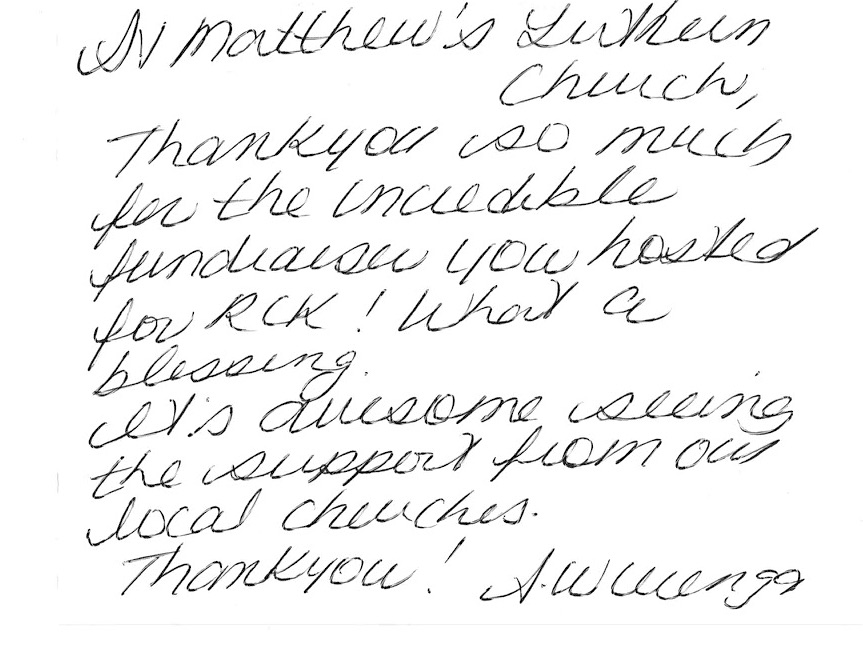 St Matthew's Lutheran
Church,
Thankyou so much
for the incredible
fundraiser you hosted
for RCK! What a
blessing.
It's awesome seeing
the support from our
local churches.
Thankyou!